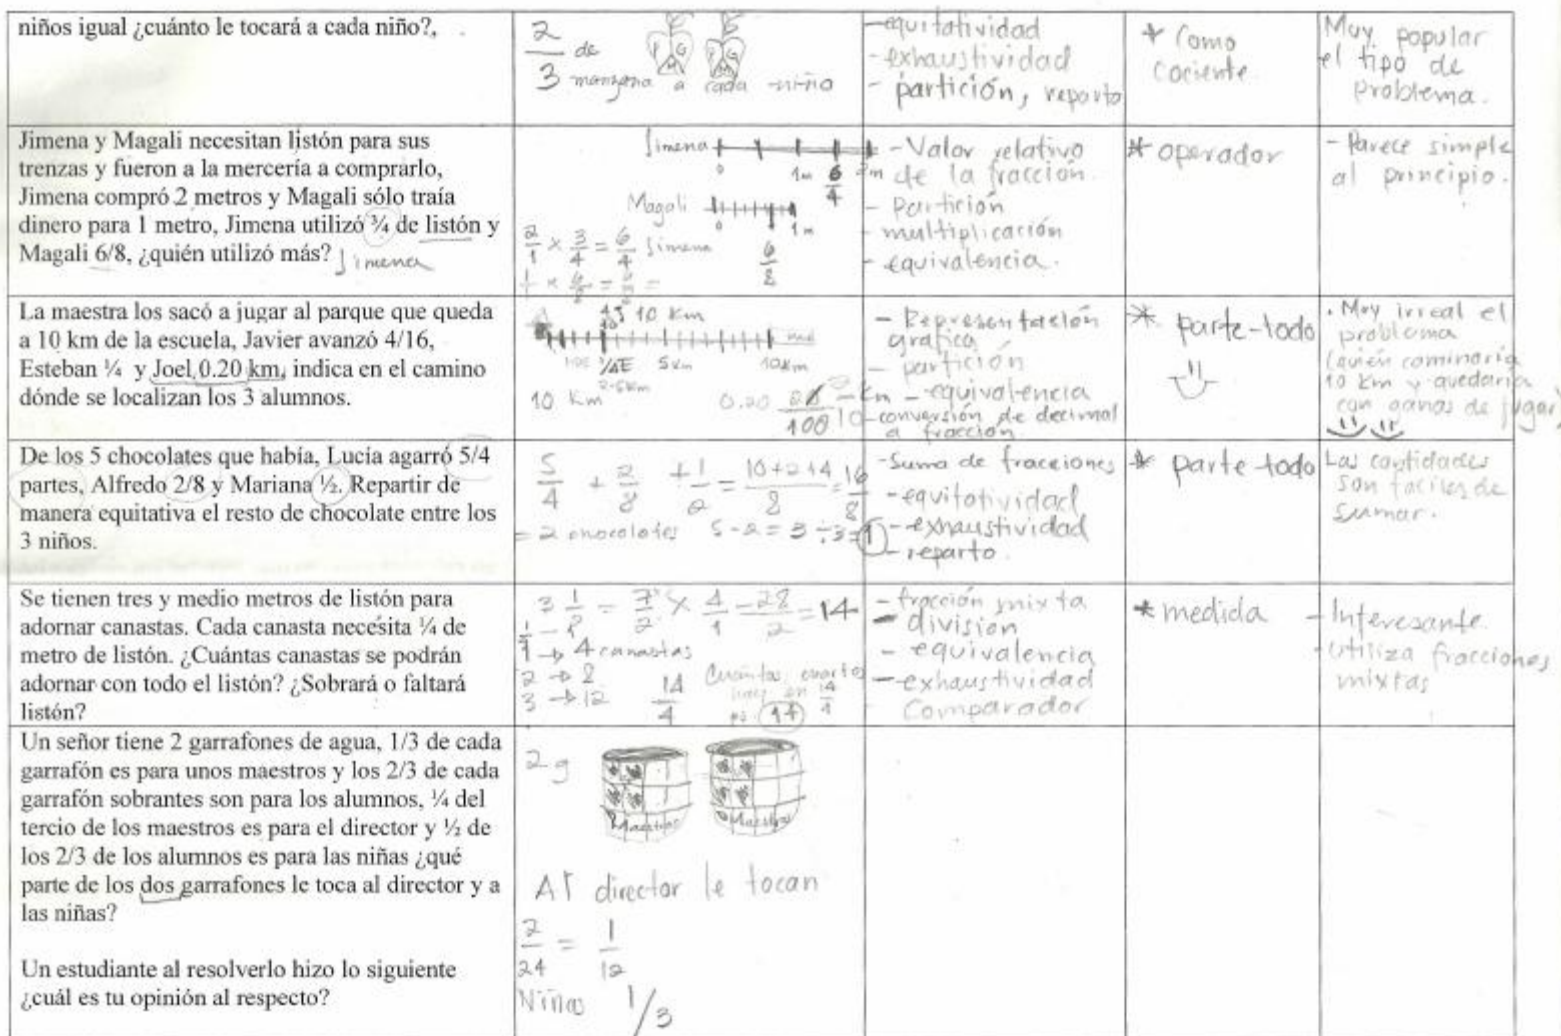 niños igual ¿cuánto le tocará a cada niño?,
2/3 de manzana a cada niño
P G M
P G M
- equitatividad
- exhaustividad
- partición, reparto
* Como cociente
Muy popular
el tipo de
problema.
Jimena y Magali necesitan listón para sus
trenzas y fueron a la mercería a comprarlo,
Jimena compró 2 metros y Magali sólo traía
dinero para 1 metro, Jimena utilizó ¾ de listón y
Magali 6/8, ¿quién utilizó más? Jimena
Jimena
0 1m 6/4 2m
Magali
0 1m
6/8
2/1 × 3/4 = 6/4 Jimena
- Valor relativo
de la fracción.
- Partición
- multiplicación
- equivalencia.
* operador
- Parece simple
al principio.
La maestra los sacó a jugar al parque que queda
a 10 km de la escuela, Javier avanzó 4/16,
Esteban ¼ y Joel 0.20 km, indica en el camino
dónde se localizan los 3 alumnos.
10 Km
5Km 10Km
2.5Km
10 Km
0.20 20/100 2/10 Km
- Representación
gráfica
- partición
- equivalencia
- conversión de decimal
a fracción
* parte-todo
. Muy irreal el
problema
(quién caminaría
10 km y quedaría
con ganas de jugar)
De los 5 chocolates que había, Lucía agarró 5/4
partes, Alfredo 2/8 y Mariana ½. Repartir de
manera equitativa el resto de chocolate entre los
3 niños.
5/4 + 2/8 + 1/2 = 10+2+4/8 = 16/8
= 2 chocolates 5-2=3÷3=1
- Suma de fracciones
- equitatividad
- exhaustividad
- reparto.
* parte-todo
Las cantidades
son faciles de
sumar.
Se tienen tres y medio metros de listón para
adornar canastas. Cada canasta necesita ¼ de
metro de listón. ¿Cuántas canastas se podrán
adornar con todo el listón? ¿Sobrará o faltará
listón?
3 1/2 = 7/2 × 4/1 = 28/2 = 14
1 → 4 canastas
2 → 8
3 → 12
14/4
Cuántos cuartos
hay en 14/4
14
- fracción mixta
- division
- equivalencia
- exhaustividad
Comparador
* medida
- Interesante
- Utiliza fracciones
mixtas
Un señor tiene 2 garrafones de agua, 1/3 de cada
garrafón es para unos maestros y los 2/3 de cada
garrafón sobrantes son para los alumnos, ¼ del
tercio de los maestros es para el director y ½ de
los 2/3 de los alumnos es para las niñas ¿qué
parte de los dos garrafones le toca al director y a
las niñas?
2 g
Maestros
Maestros
Al director le tocan
2/24 = 1/12
Niñas 1/3
Un estudiante al resolverlo hizo lo siguiente
¿cuál es tu opinión al respecto?